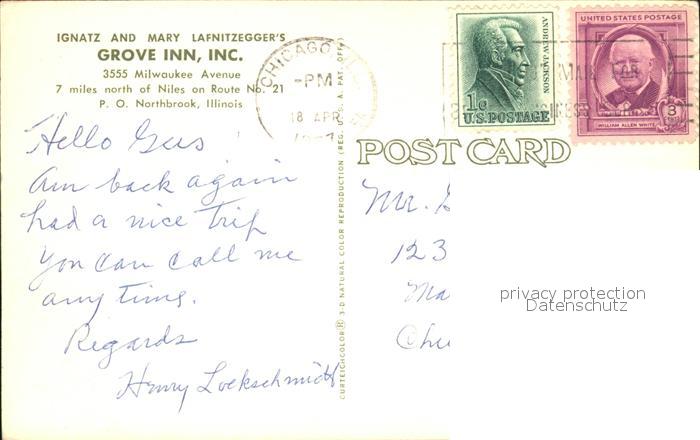 IGNATZ AND MARY LAFNITZEGGER'S
GROVE INN, INC.
3555 Milwaukee Avenue
7 miles north of Niles on Route No. 21
P. O. Northbrook, Illinois
Hello Gus
Am back again
had a nice trip
you can call me
any time.
Regards
Henry Lockschmidt
CURTEICHCOLOR® 3-D NATURAL COLOR REPRODUCTION (REG. U.S.A. PAT. OFF.)
CHICAGO
-PM
18 APR
ANDREW JACKSON
1¢
U.S. POSTAGE
UNITED STATES POSTAGE
3
WILLIAM ALLEN WHITE
POST CARD
Mr.
123
Ma
Chi
privacy protection
Datenschutz